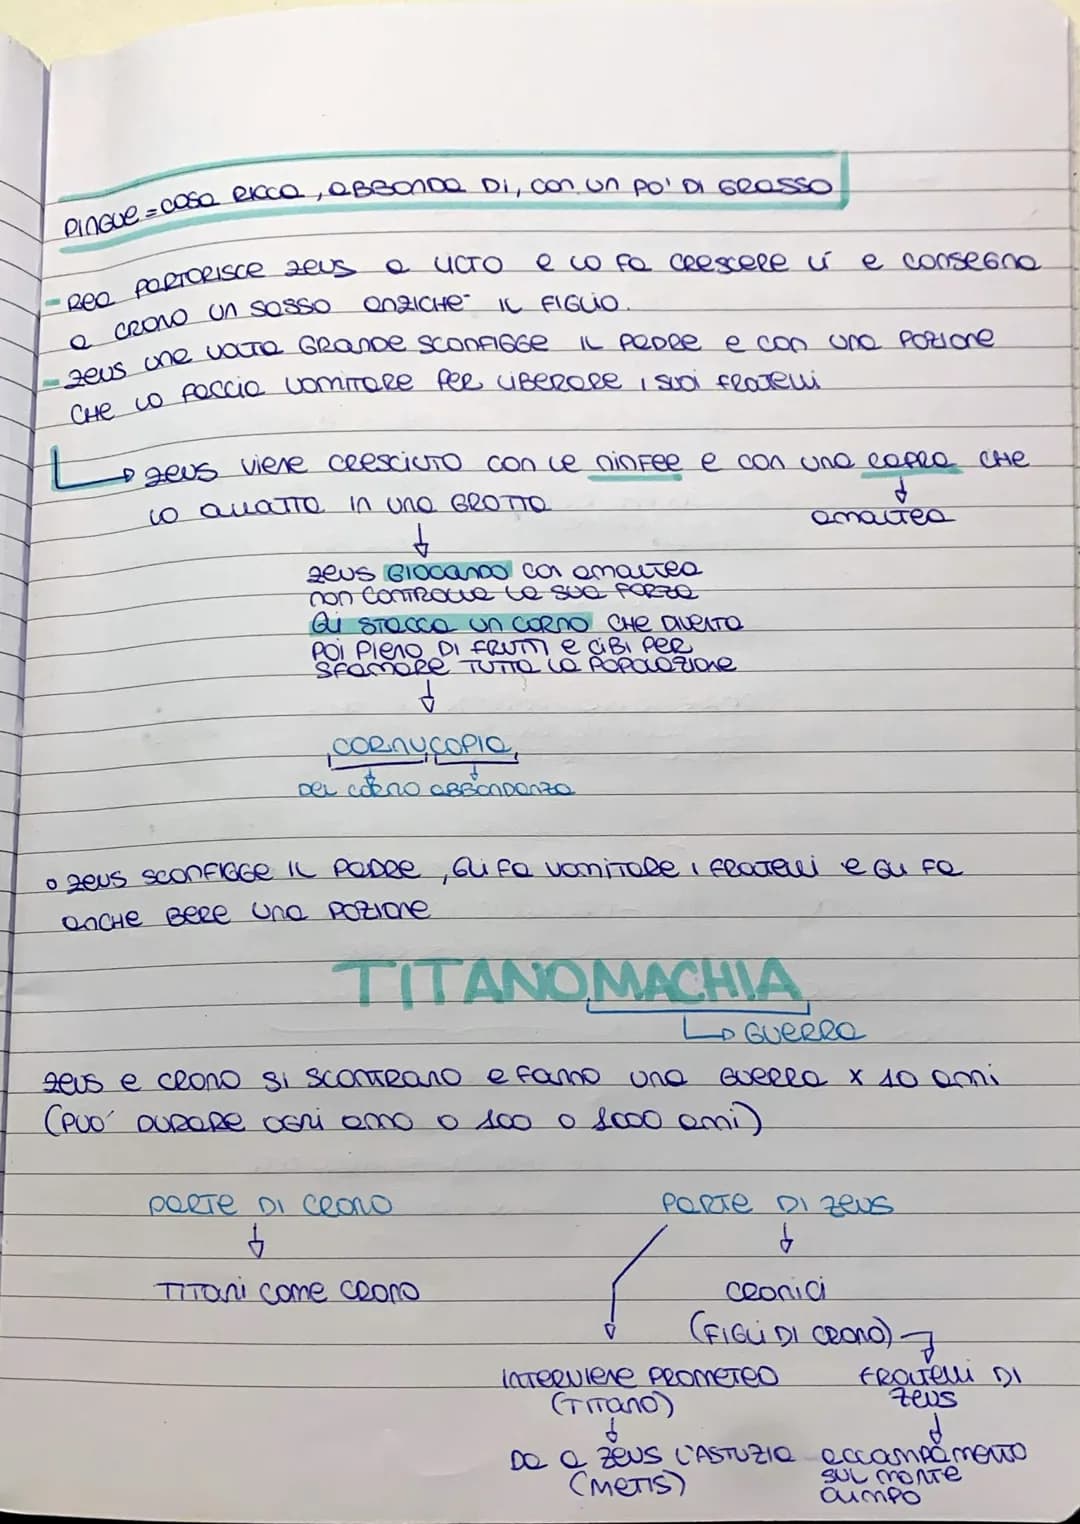 PINGUE = COSA RICCA, ABBONDA DI, CON UN PO' DI GRASSO
- REA PARTORISCE ZEUS A LICTO E LO FA CRESCERE LÍ E CONSEGNA
A CRONO UN SASSO ANZICHE' IL FIGLIO.
- ZEUS UNA VOLTA GRANDE SCONFIGGE IL PADRE E CON UNA POZIONE
CHE LO FACCIA VOMITARE PER LIBERARE I SUOI FRATELLI
ZEUS VIENE CRESCIUTO CON LE NINFEE E CON UNA CAPRA CHE
LO ALLATTA IN UNA GROTTA
AMALTEA
ZEUS GIOCANDO CON AMALTEA
NON CONTROLLA LA SUA FORZA
GLI STACCA UN CORNO CHE DIVENTA
POI PIENO DI FRUTTI E CIBI PER
SFAMARE TUTTA LA POPOLAZIONE
CORNUCOPIA
DEL CORNO ABBONDANZA
ZEUS SCONFIGGE IL PADRE, GLI FA VOMITARE I FRATELLI E GLI FA
ANCHE BERE UNA POZIONE
TITANOMACHIA
GUERRA
ZEUS E CRONO SI SCONTRANO E FANNO UNA GUERRA X 10 ANNI
(PUO' DURARE OGNI ANNO O 100 O 1000 ANNI)
PARTE DI CRONO PARTE DI ZEUS
TITANI COME CRONO CRONICI
(FIGLI DI CRONO)
INTERVIENE PROMETEO FRATELLI DI
(TITANO) ZEUS
DA A ZEUS L'ASTUZIA ACCAMPAMENTO
(METIS) SUL MONTE
OLIMPO